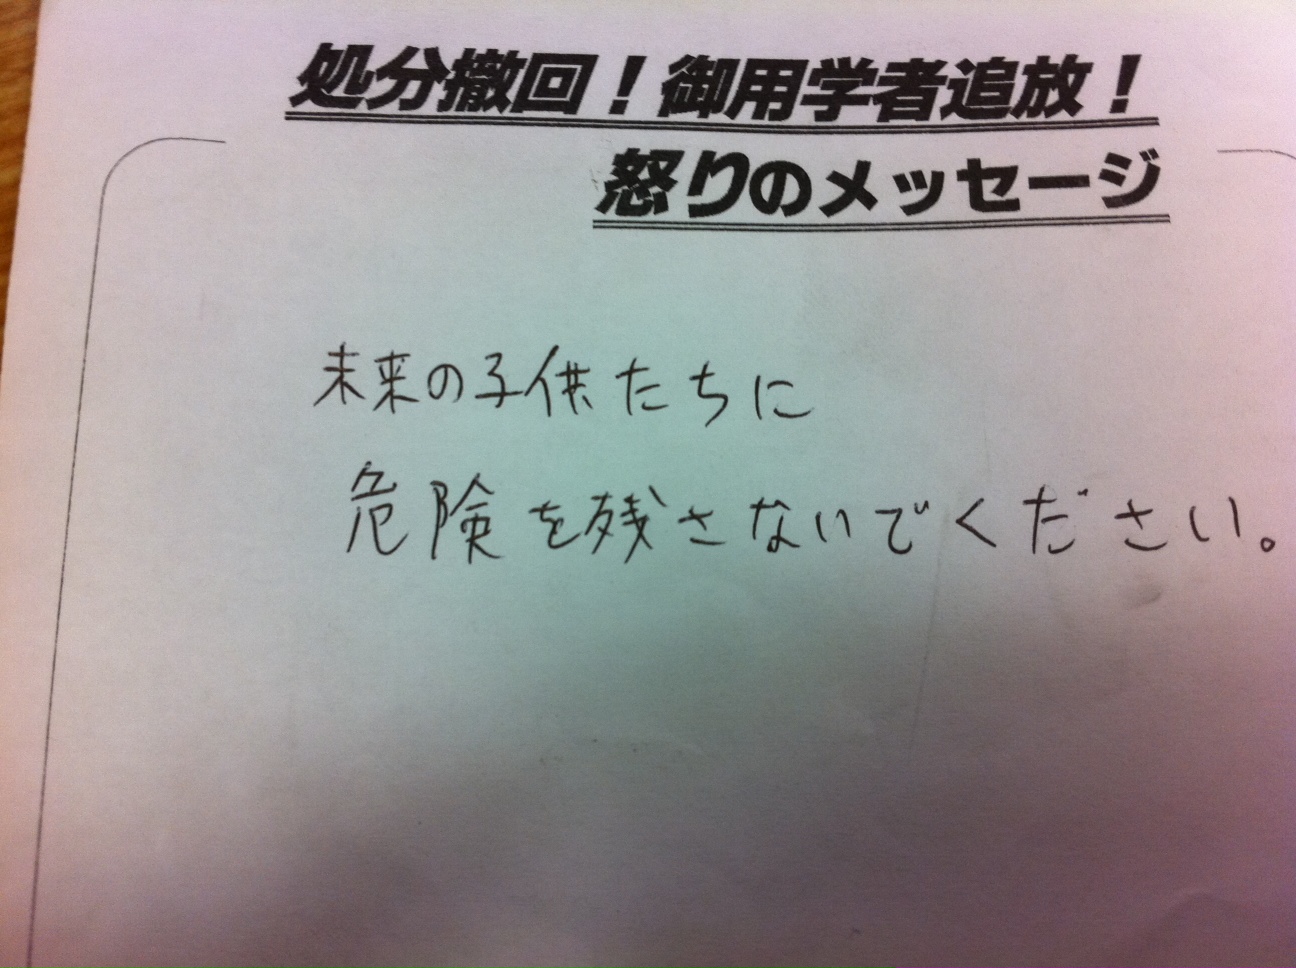 処分撤回！御用学者追放！
怒りのメッセージ
未来の子供たちに
危険を残さないでください。